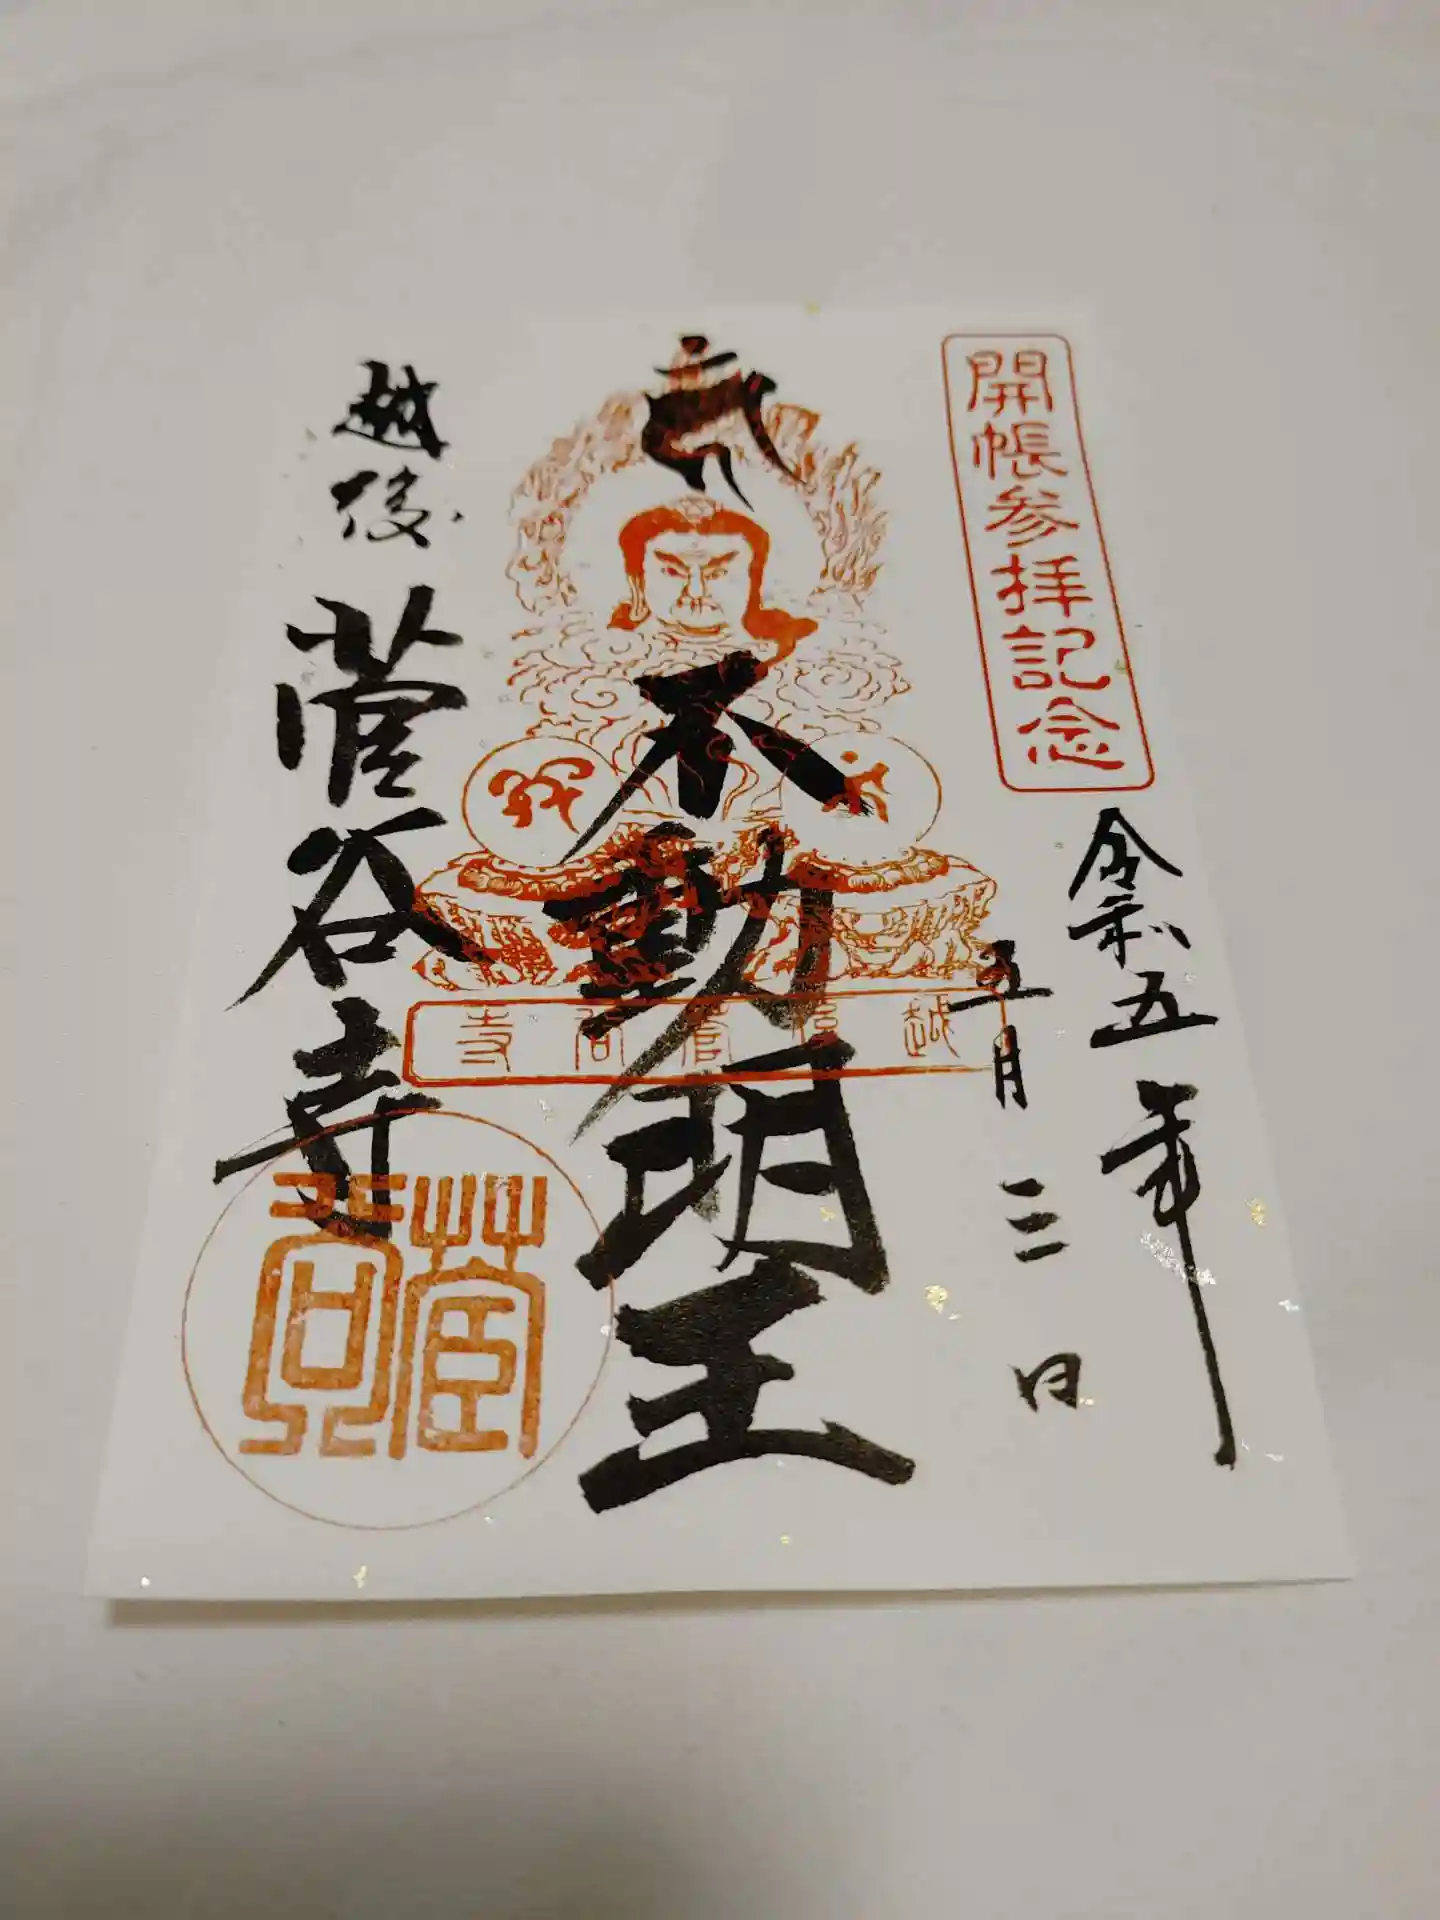 開帳参拝記念
令和五年
五月三日
不動明王
越後
菅谷寺
越後菅谷寺